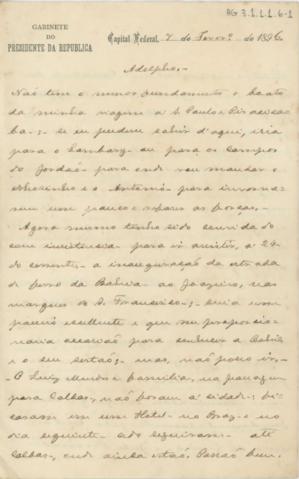 AG 3.1.1.6-1
GABINETE
DO
PRESIDENTE DA REPUBLICA
Capital Federal, 7 de Fever.º de 1896.
Adolpho,-
Não tem o menor fundamento o boato
da minha viagem a S. Paulo e Piracicaba
ba; se eu pudesse sahir d'aqui, iria
para o Lambary ou para os campos
do Jordão para onde vou mandar o
e o Antonio para
um pouco e as forças.-
Agora mesmo tenho sido convidado
com insistencia para ir assistir, a 24
do corrente, a inauguração da estrada
de ferro da Bahia ao Joazeiro, nas
margens do S. Francisco; seria um
passeio excellente e que me proporcio-
naria occasião para conhecer a Bahia
e o seu sertão; mas, não posso ir.-
O Luiz Mundo e familia, na passagem
para Caldas, não foram á cidade; fi-
caram em um Hotel no Braz e no
dia seguinte cedo seguiram até
Caldas, onde ainda estão. Passão bem.